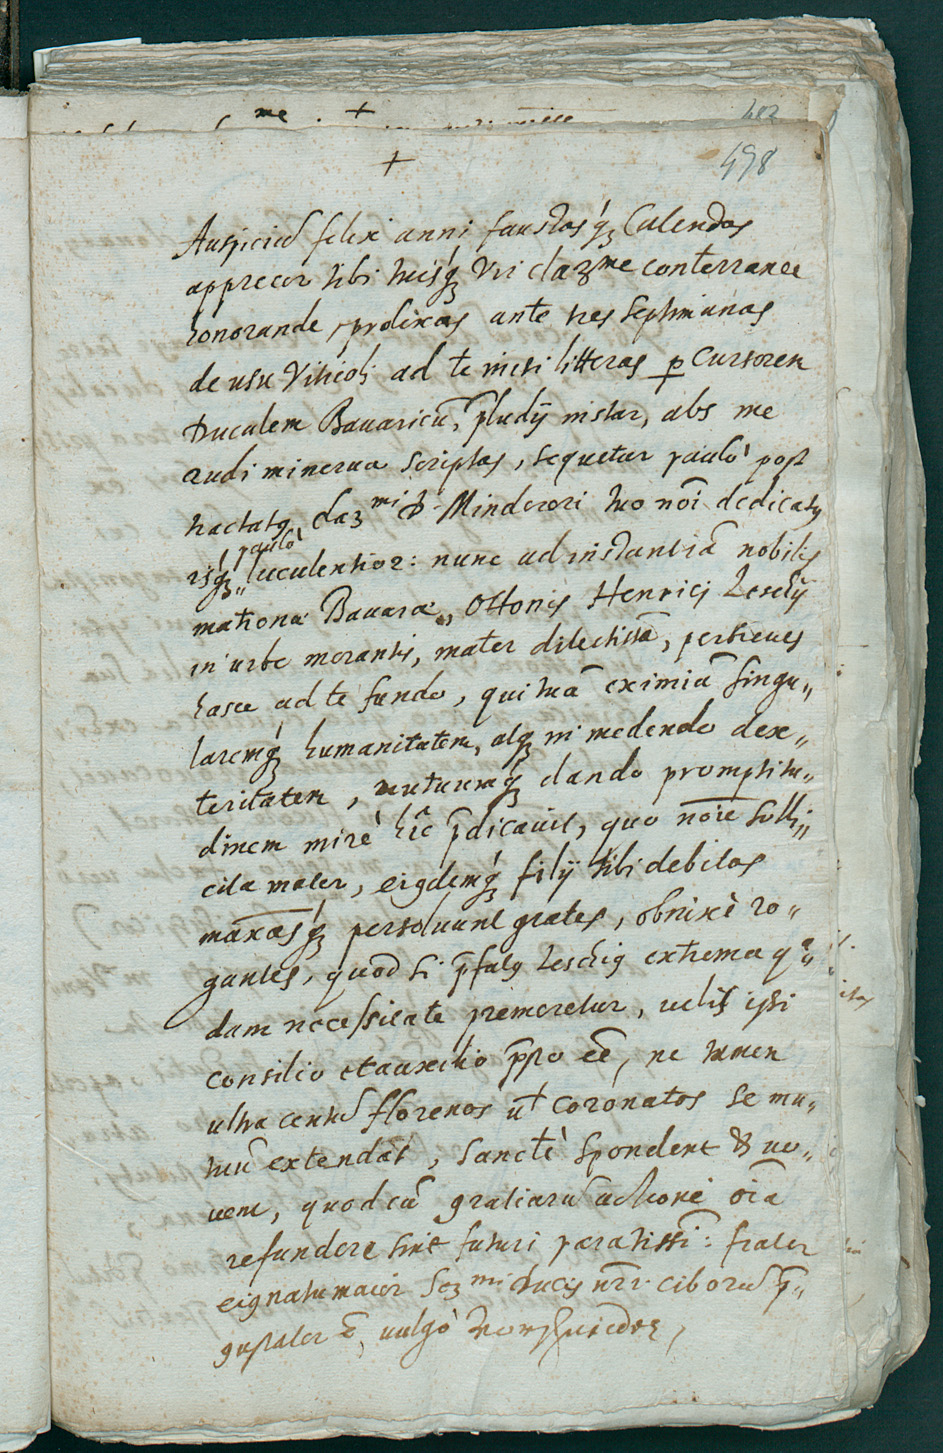 +
498
Auspiciū felix anni faustasq́ꝫ Calendas
apprecor tibi tuisq́ꝫ Vir claꝫme conterranee
honorande, prolixas ante tres septimanas
de usu Vitrioli ad te misi litteras ꝑ Cursorem
Ducalem Bauaricū, p̄ludij instar, abs me
rudi minerua scriptas, sequetur paulò post
tractatꝫ claꝫmi D. Mindereri tuo noī dedicatꝫ
isq́ꝫ paulò luculentior: nunc ad instantiā nobilis
matronæ Bauaræ, Ottonis Henrici Leschij
in urbe morantis, mater dilectissā, perbreues
hasce ad te fundo, qui tuā eximiā singu„
laremq́ꝫ humanitatem, atqꝫ in medendo dex„
teritatem, mutuumq́ꝫ dando promptitu„
dinem mirè hîc p̄dicauit, quo noīe solli„
cita mater, eiꝫdemq́ꝫ filij tibi debitas
maxasq́ꝫ persoluunt grates, obnixè ro„
gantes, quod si p̄fatꝫ Leschiꝫ extrema qa„
dam necessitate premeretur, uelis ipsi
consilio et auxilio p̄sto eē, ne tamen
ultra centū florenos ut̄ coronatos se mu„
tuū extendāt, sanctè spondent & uo„
uent, quod cū gratiarū actione oīa
refundere sint futuri paratissī: frater
eiꝫ natu maior Seꝫmi Ducis nr̄i ciborū p̄„
gustator ē, uulgò Vorschneider,